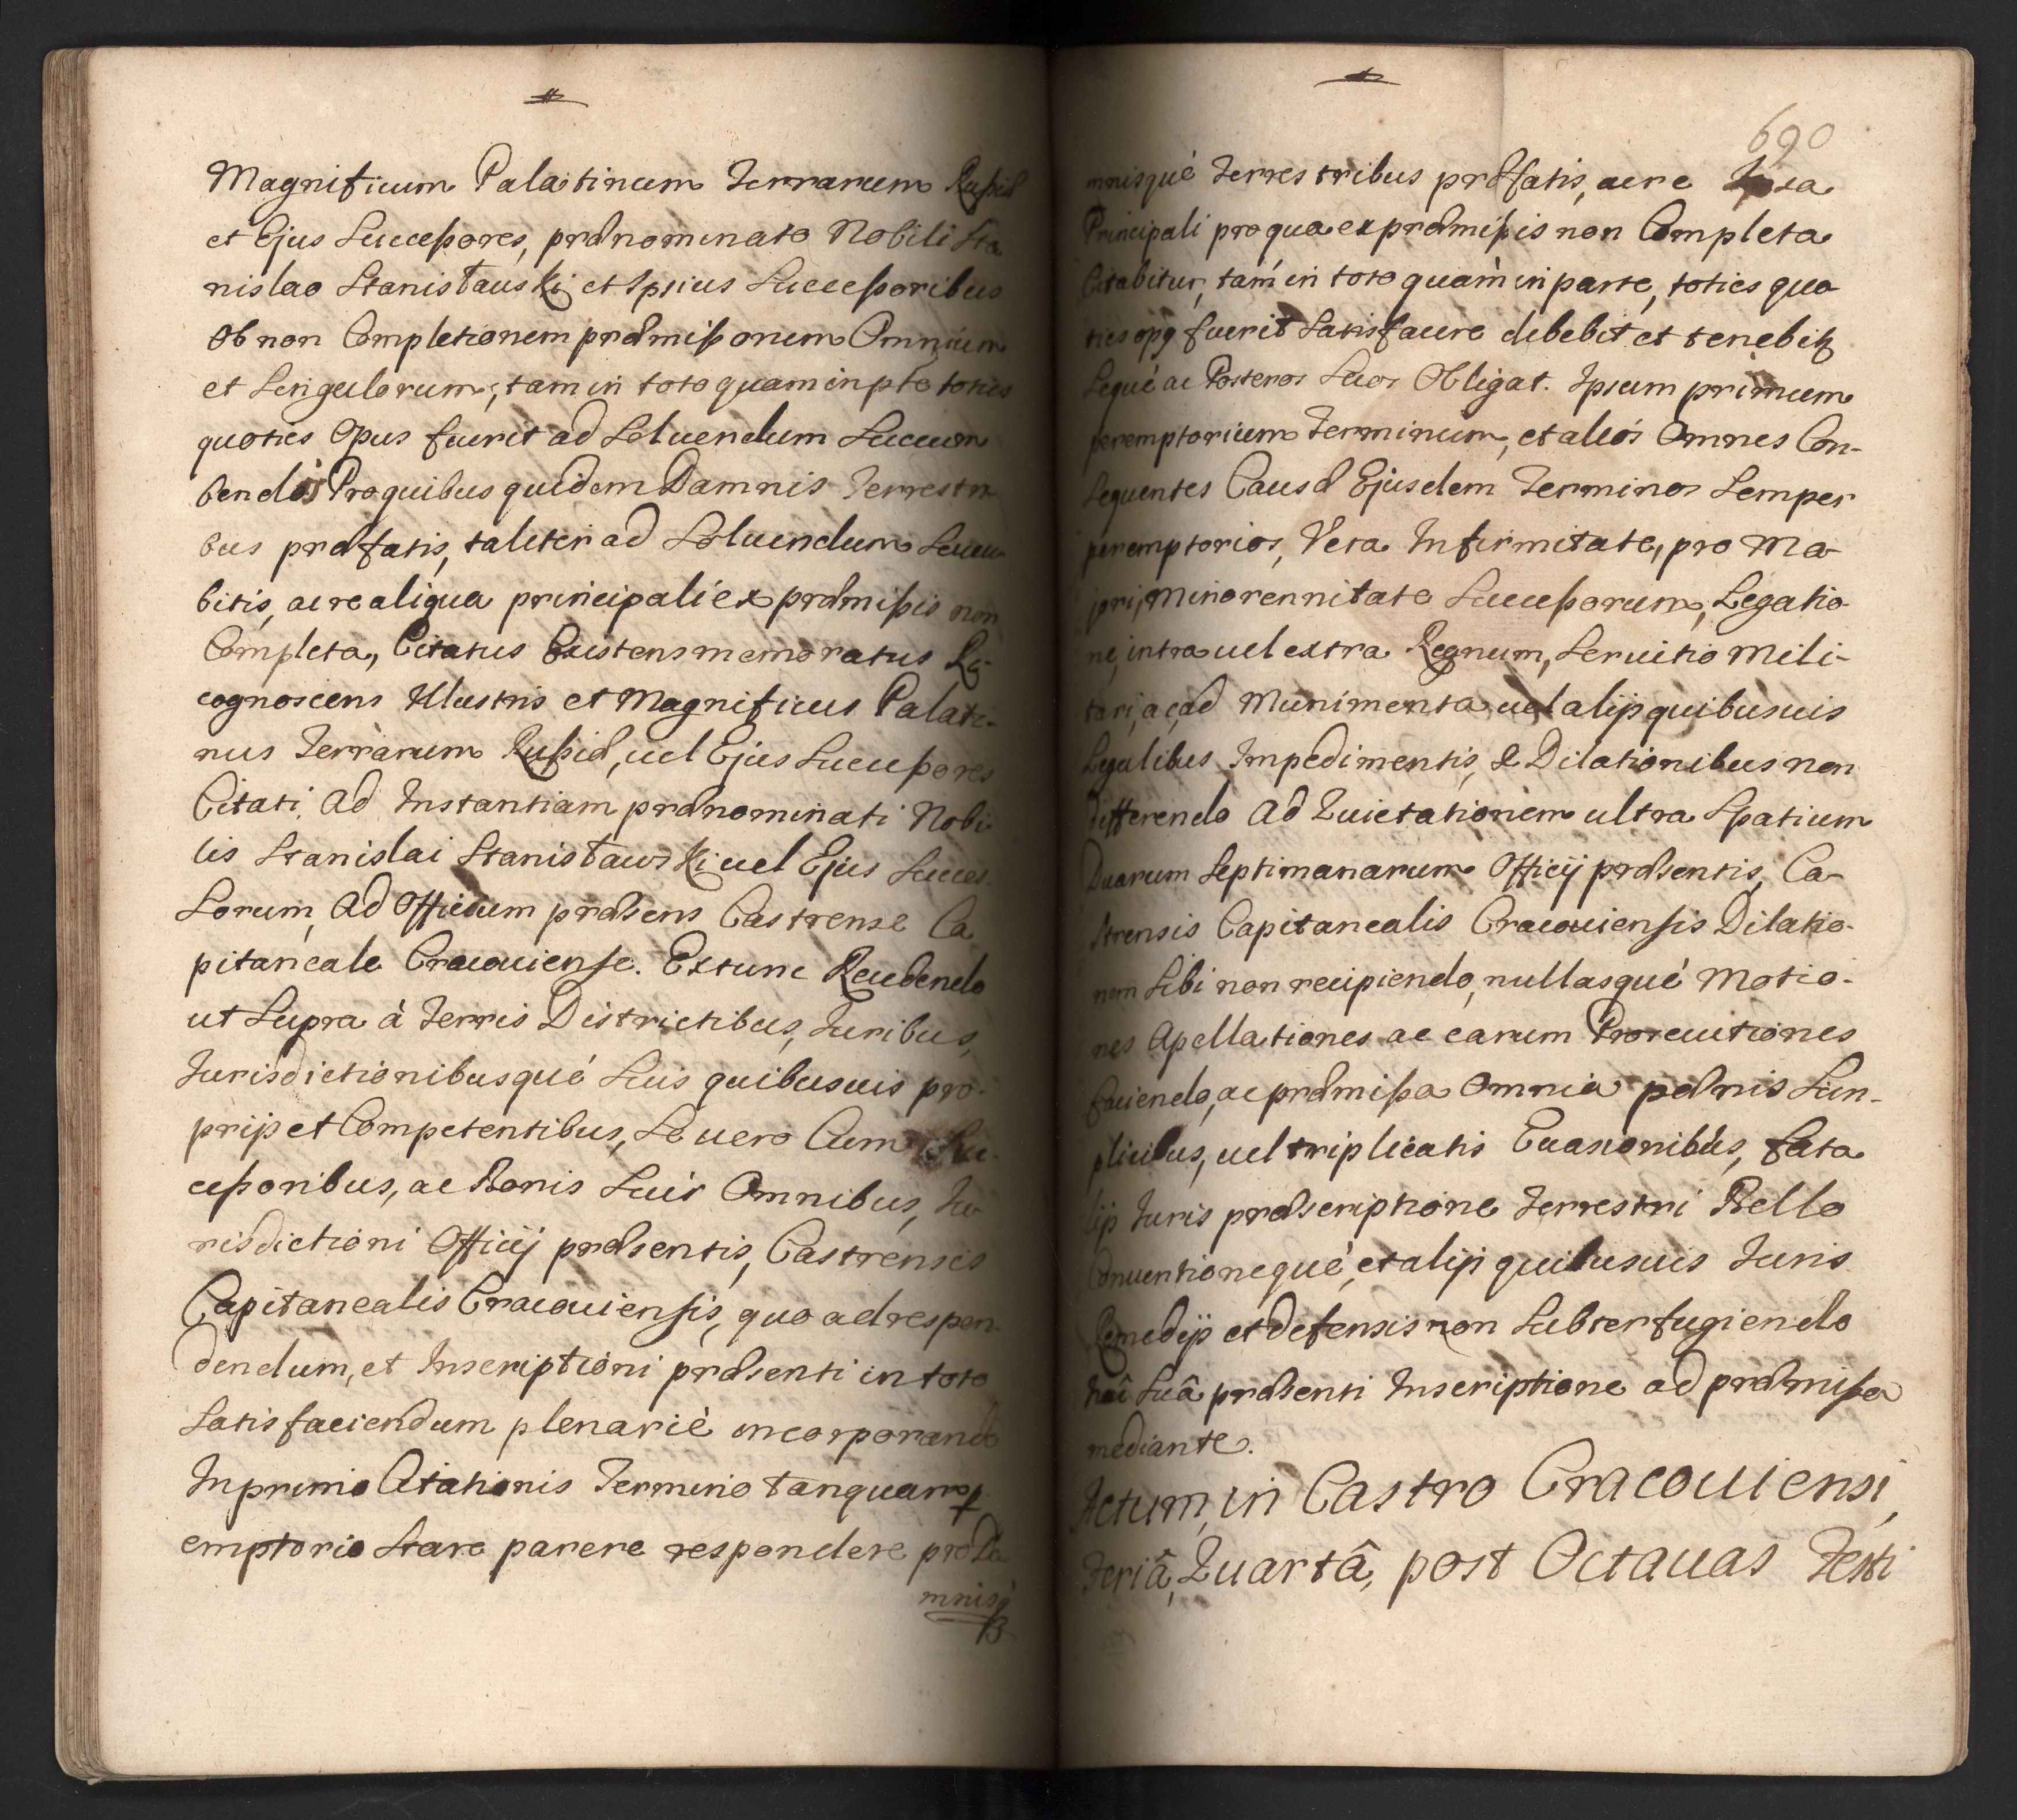 Magnificum Palatinum Terrarum Rußiæ
et Ejus Succeßores, prænominato Nobili Sta
nislao Stanisławski et Ipsius Succeßoribus
Ob non Completionem præmißorum Omnium
et Singulorum, tam in toto quam in pte toties
quoties Opus fuerit ad Soluendum Succum
bendo, Pro quibus quidem Damnis Terrestri
bus præfatis, taliter ad Soluendum Succu
bitis, ac re aliqua principali ex præmißis non
Completa, Citatus Existens memoratus Re
cognoscens Illustris et Magnificus Palati-
nus Terrarum Rußiæ, uel Ejus Succeßores
Citati, ad Instantiam prænominati Nobi
lis Stanislai Stanisławski uel Ejus Succes
Sorum, ad Officium præsens Castrense Ca
pitaneale Cracouiense. Extunc Recedendo
ut Supra à Terris Districtibus, Iuribus,
Iurisdictionibusqué Suis quibusuis pro-
prijs et Competentibus, Se uero Cum Suc-
ceßoribus, ac Bonis Suis Omnibus, Iu
risdictioni Officij præsentis, Castrensis
Capitanealis Cracouiensis, quo ad respon-
dendum, et Inscriptioni præsenti in toto
Satisfaciendum plenariè incorporando
In primo Citationis Termino tanquam p
emptorio Stare parere respondere pro Da
mnisq
690
mnisqué Terrestribus præfatis, ac re Ipsa
Principali pro qua ex præmißis non Completa
Citabitur, tam in toto quam in parte, toties quo
ties opq fuerit Satisfacere debebit et tenebitz
Sequé ac Posteros Suos Obligat. Ipsum primum
peremptorium Terminum, et alios Omnes Con-
Sequentes Causæ Ejusdem Terminos Semper
peremptorios, Vera Infirmitate, pro Ma-
jori, Minorennitate Succeßorum, Legatio-
ne, intra uel extra Regnum, Seruitio Mili-
tari, ac ad Munimenta uel alijs quibusuis
Legalibus Impedimentis, & Dilationibus non
differendo ad Quietationem ultra Spatium
Duarum Septimanarum Officij præsentis, Ca-
Strensis Capitanealis Cracouiensis Dilatio-
nem Sibi non recipiendo, nullasqué Motio-
nes Apellationes ac earum Prosecutiones
faciendo, ac præmißa Omnia pænis Sim-
plicibus, uel triplicatis Euasionibus, fata
lijs Iuris præscriptione Terrestri Bello
Conuentionequé, et alijs quibusuis Iuris
Remedijs et defensis non Subterfugiendo
hac Suâ præsenti Inscriptione ad præmißa
mediante.
Actum, in Castro Cracouiensi,
Feriâ, Quartâ, post Octauas Festi